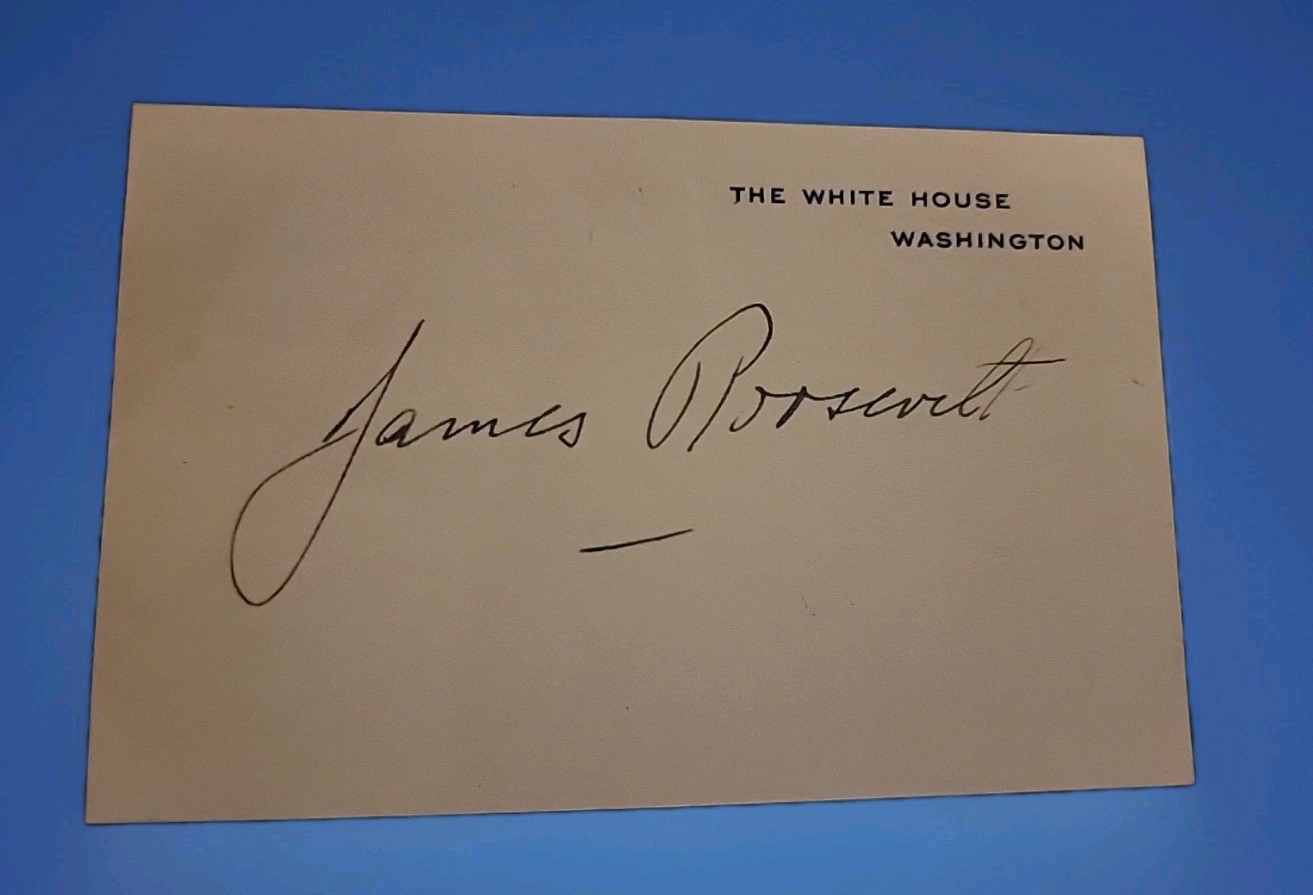 THE WHITE HOUSE
WASHINGTON
James Roosevelt